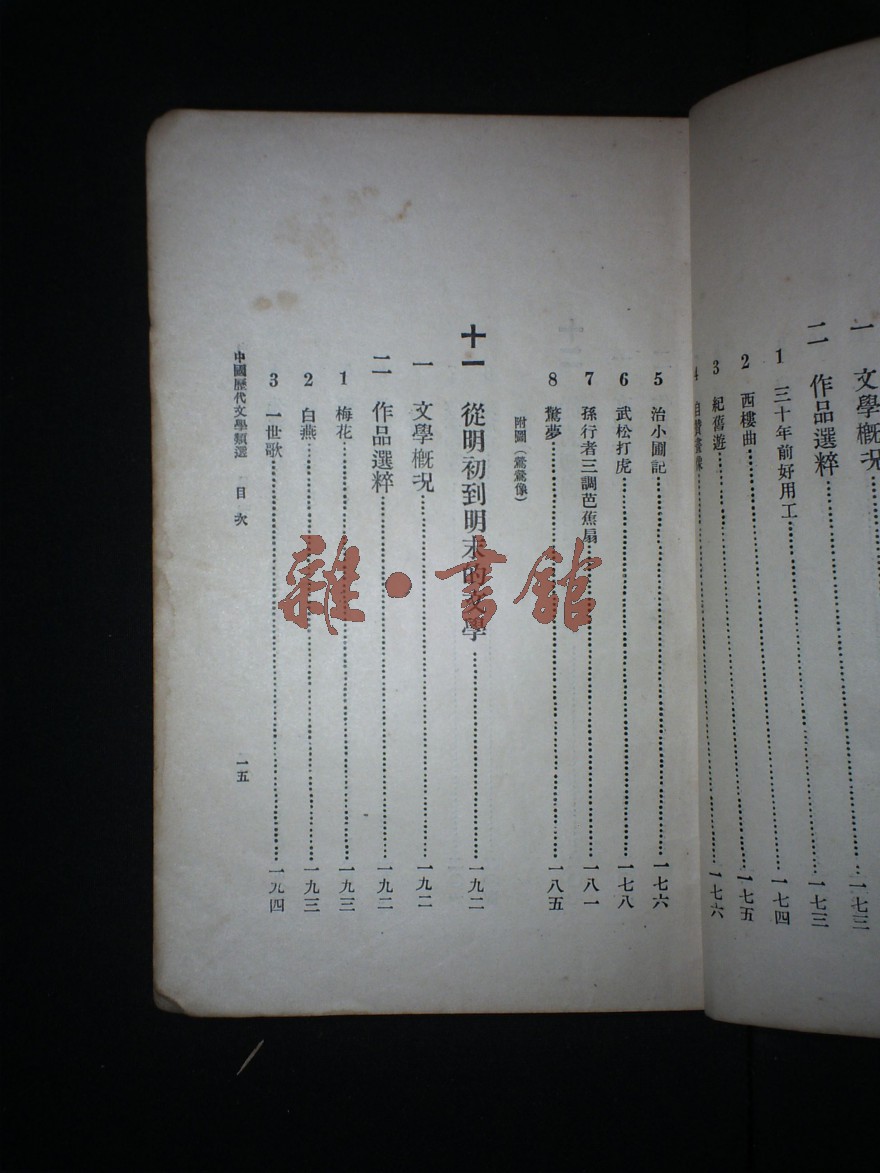 一 文學概況……一七三
二 作品選粹……一七三
1 三十年前好用工……一七四
2 西樓曲……一七五
3 紀舊遊……一七六
4 自
5 治小圃記……一七六
6 武松打虎……一七八
7 孫行者三調芭蕉扇……一八一
8 驚夢……一八五
附圖(鶯鶯像)
十一 從明初到明末的文學……一九二
一 文學概況……一九二
二 作品選粹……一九二
1 梅花……一九三
2 白燕……一九三
3 一世歌……一九四
中國歷代文學類選 目次 一五
雜·書館